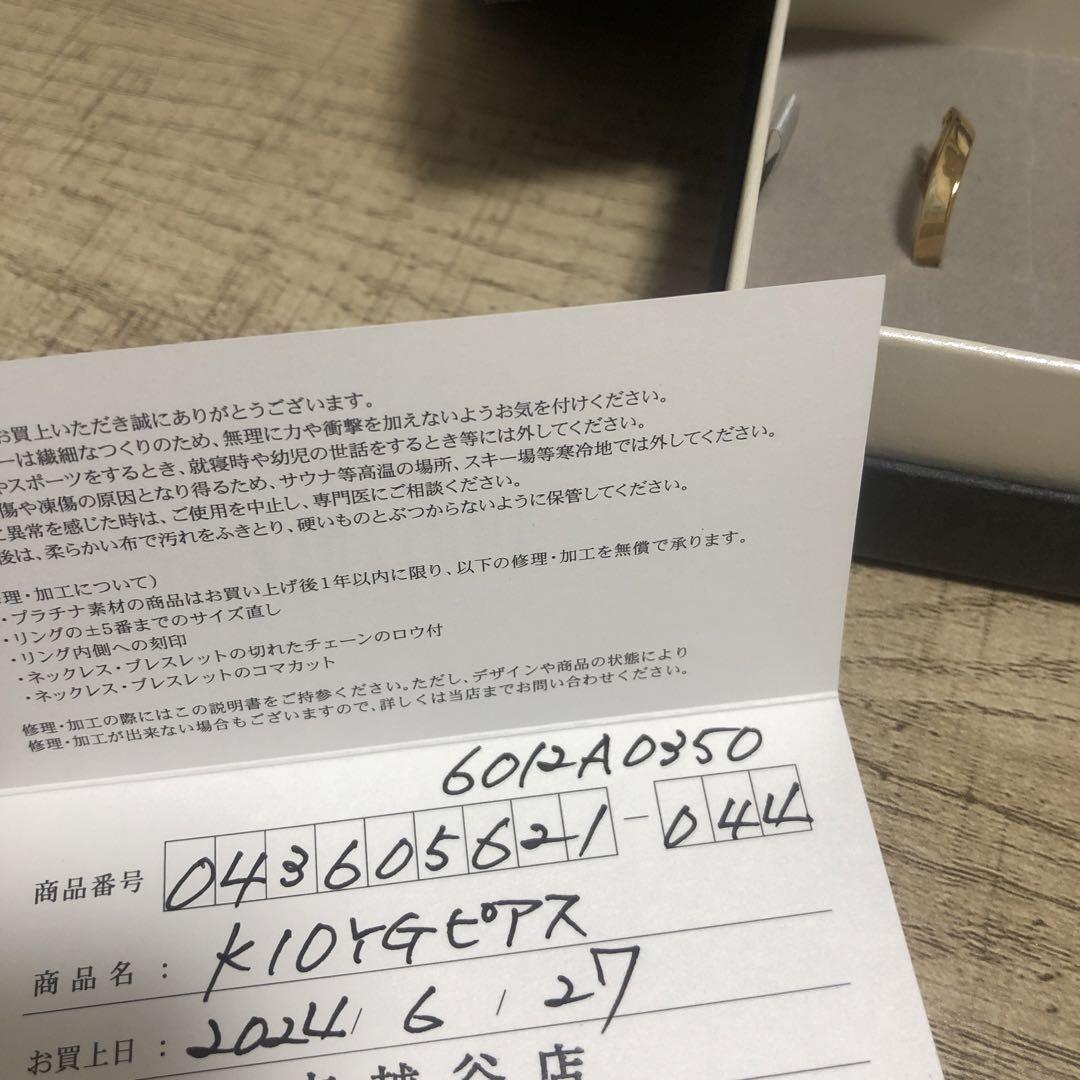 お買上いただき誠にありがとうございます。
ーは繊細なつくりのため、無理に力や衝撃を加えないようお気を付けください。
やスポーツをするとき、就寝時や幼児の世話をするとき等には外してください。
傷や凍傷の原因となり得るため、サウナ等高温の場所、スキー場等寒冷地では外してください。
に異常を感じた時は、ご使用を中止し、専門医にご相談ください。
後は、柔らかい布で汚れをふきとり、硬いものとぶつからないように保管してください。
理・加工について)
・プラチナ素材の商品はお買い上げ後1年以内に限り、以下の修理・加工を無償で承ります。
・リングの±5番までのサイズ直し
・リング内側への刻印
・ネックレス・ブレスレットの切れたチェーンのロウ付
・ネックレス・ブレスレットのコマカット
修理・加工の際にはこの説明書をご持参ください。ただし、デザインや商品の状態により
修理・加工が出来ない場合もございますので、詳しくは当店までお問い合わせください。
6012A0350
商品番号 043605621-044
商品名： K10YGピアス
お買上日： 2024, 6, 27
越谷店